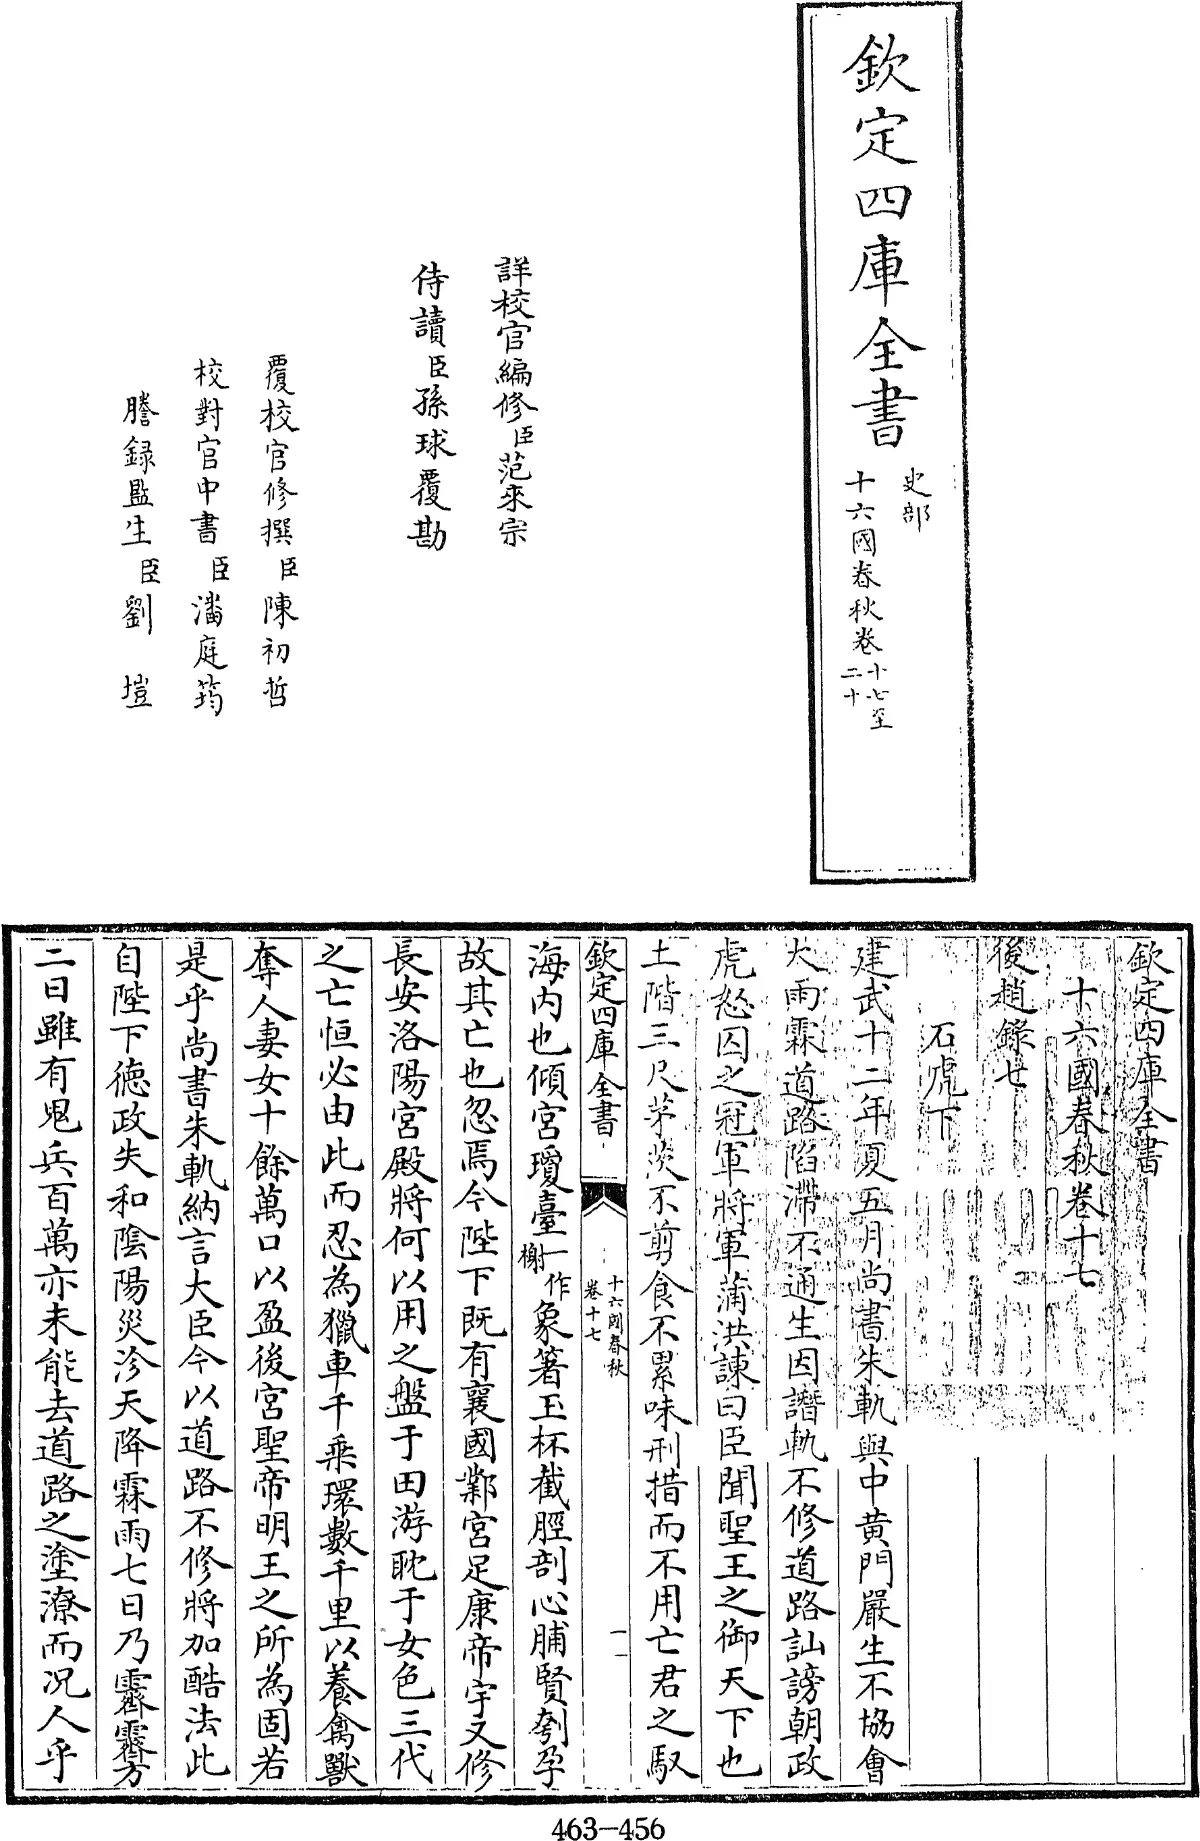 欽定四庫全書
史部
十六國春秋卷十七至
二十
詳校官編修臣范來宗
侍讀臣孫球覆勘
覆校官修撰臣陳初哲
校對官中書臣潘庭筠
謄錄監生臣劉塏
欽定四庫全書
十六國春秋卷十七
後趙錄七
石虎下
建武十二年夏五月尚書朱軌與中黄門嚴生不協會
大雨霖道路陷滯不通生因譖軌不修道路訕謗朝政
虎怒囚之冠軍將軍蒲洪諫曰臣聞聖王之御天下也
土階三尺茅茨不剪食不累味刑措而不用亡君之馭
欽定四庫全書
十六國春秋
卷十七
一
海内也傾宮瓊臺一作榭象箸玉杯截脛剖心脯賢刳孕
故其亡也忽焉今陛下既有襄國鄴宮足康帝宇又修
長安洛陽宮殿將何以用之盤于田游耽于女色三代
之亡恒必由此而忍為獵車千乘環數千里以養禽獸
奪人妻女十餘萬口以盈後宮聖帝明王之所為固若
是乎尚書朱軌納言大臣今以道路不修將加酷法此
自陛下德政失和陰陽災沴天降霖雨七日乃霽霽方
二日雖有鬼兵百萬亦未能去道路之塗潦而况人乎
463-456